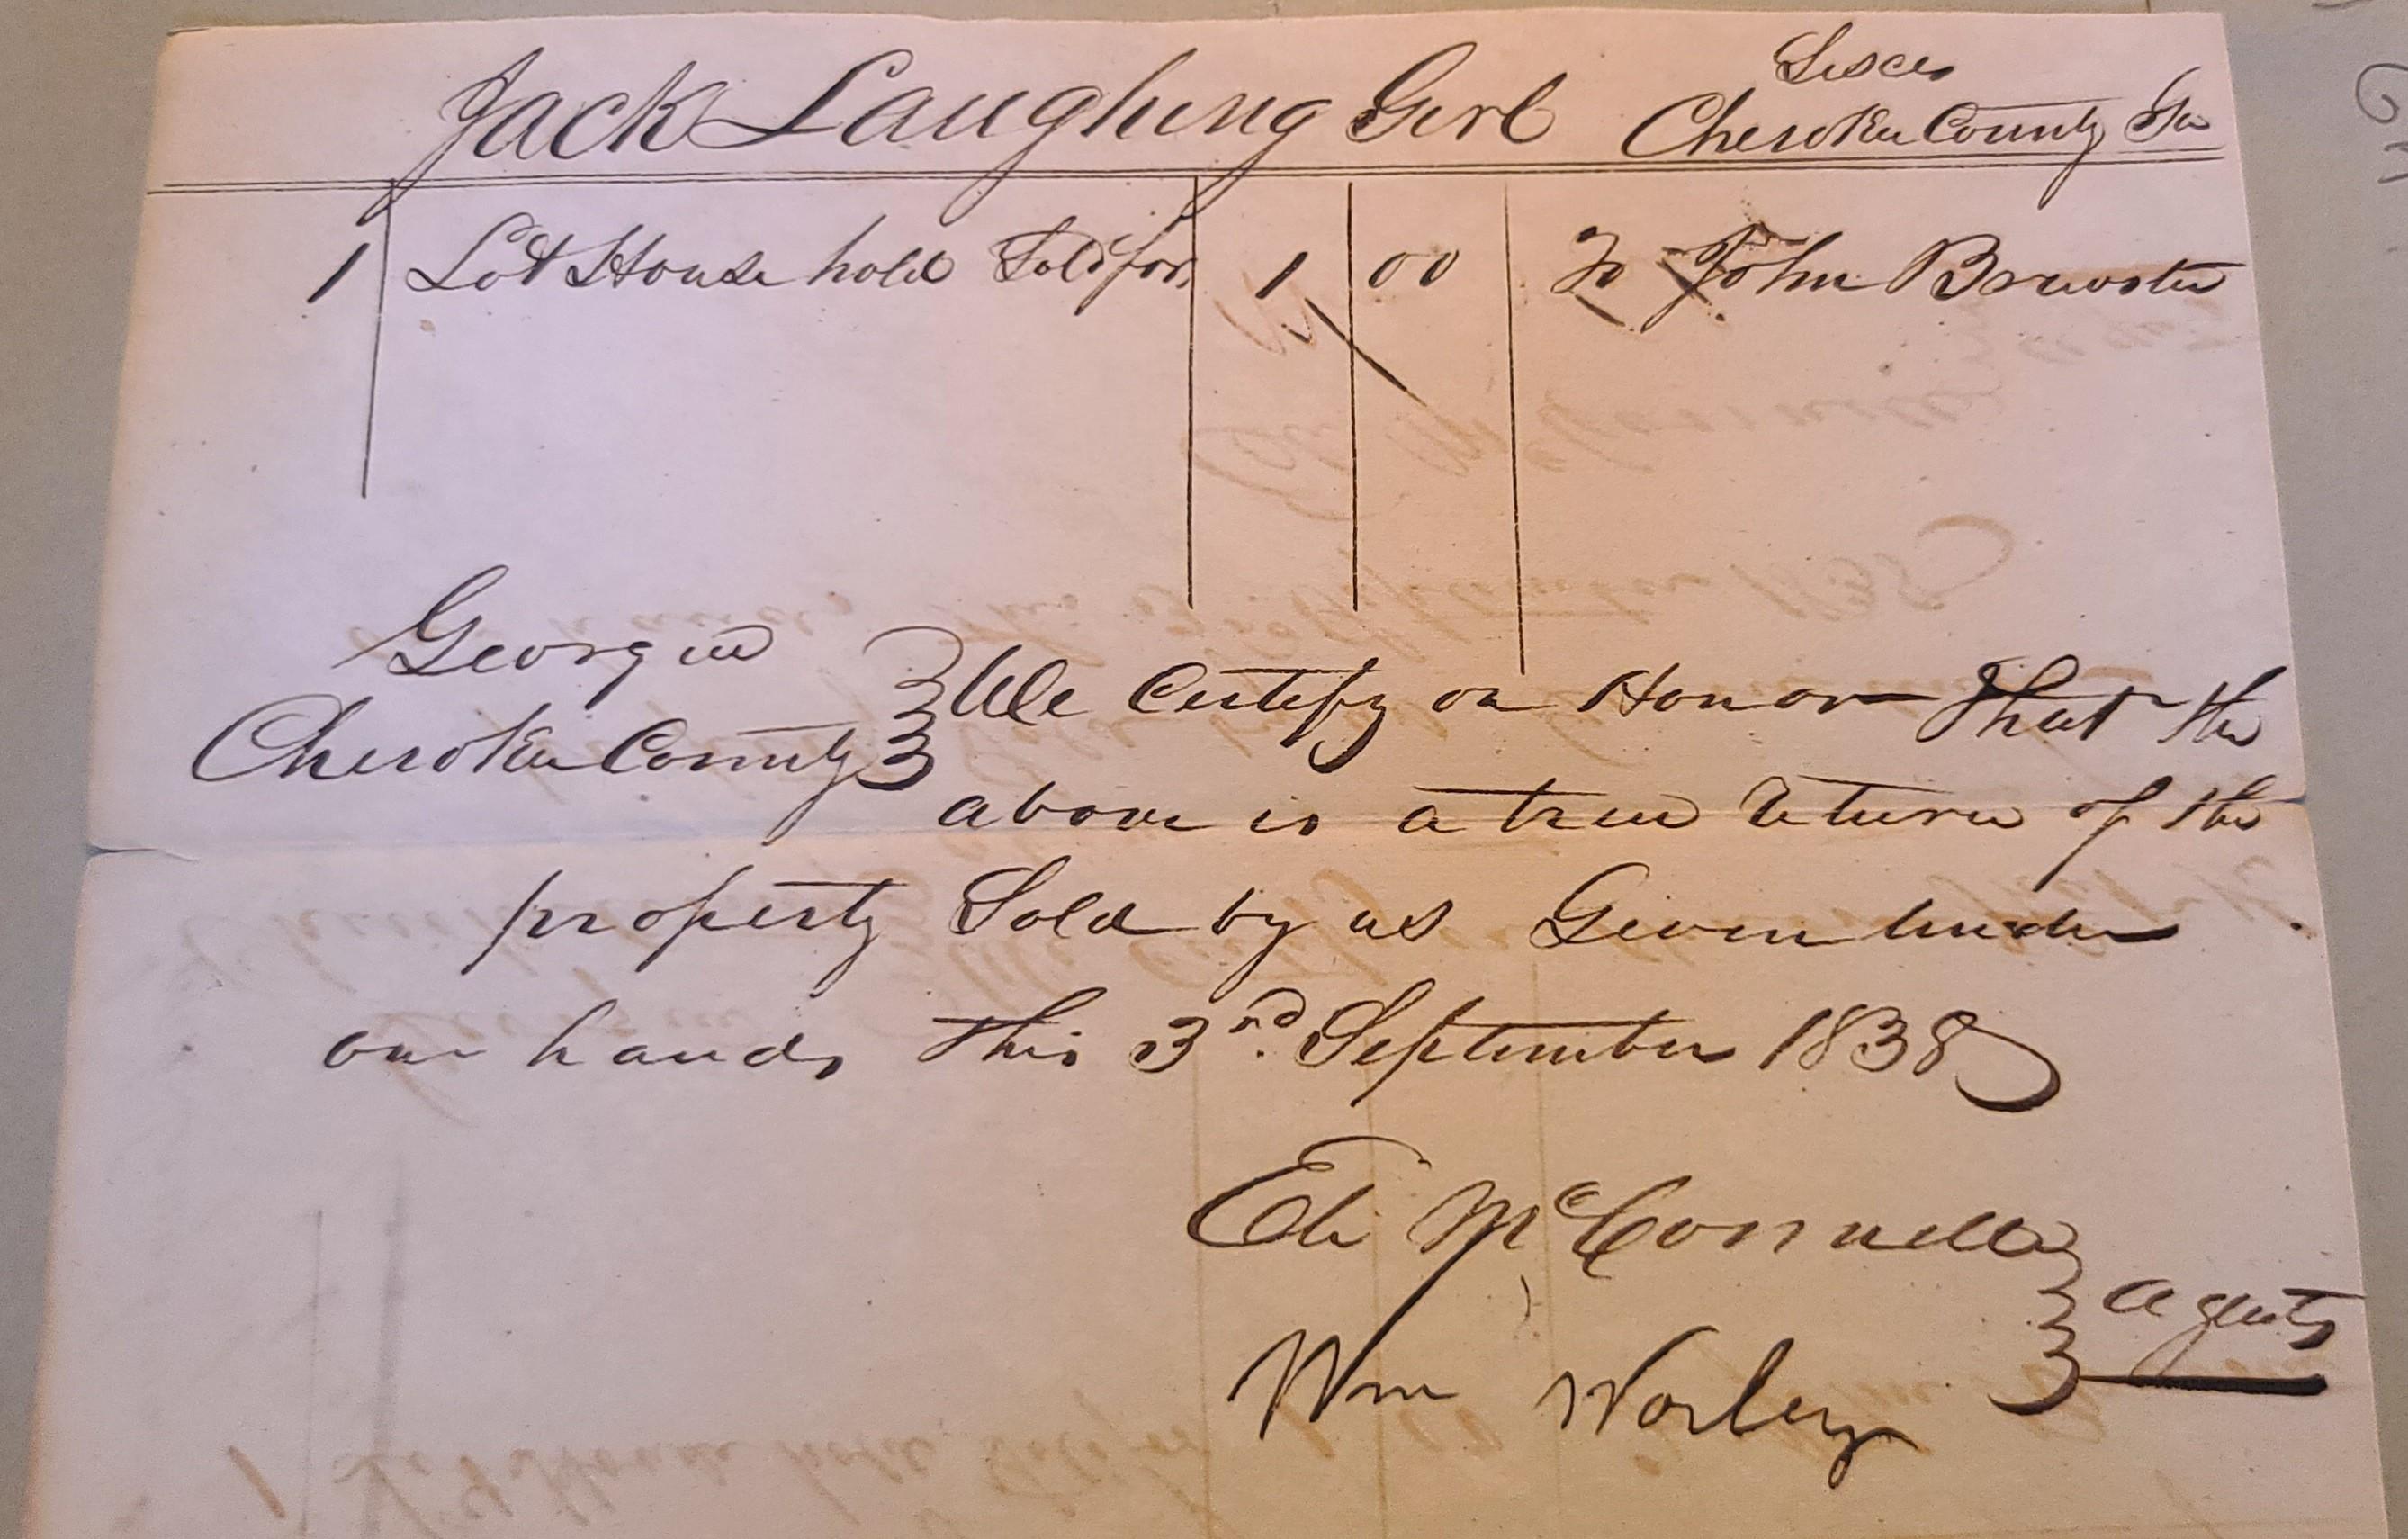 Jack Laughing Girl
Cherokee County Ga
1 Lot House hold Sold for 1 00 To John Brewster
Georgia
Cherokee County
We Certify on Honor that the
above is a true Return of the
property Sold by us Given under
our hands this 3rd. September 1838
Eli McConnell
Wm Worley
agents